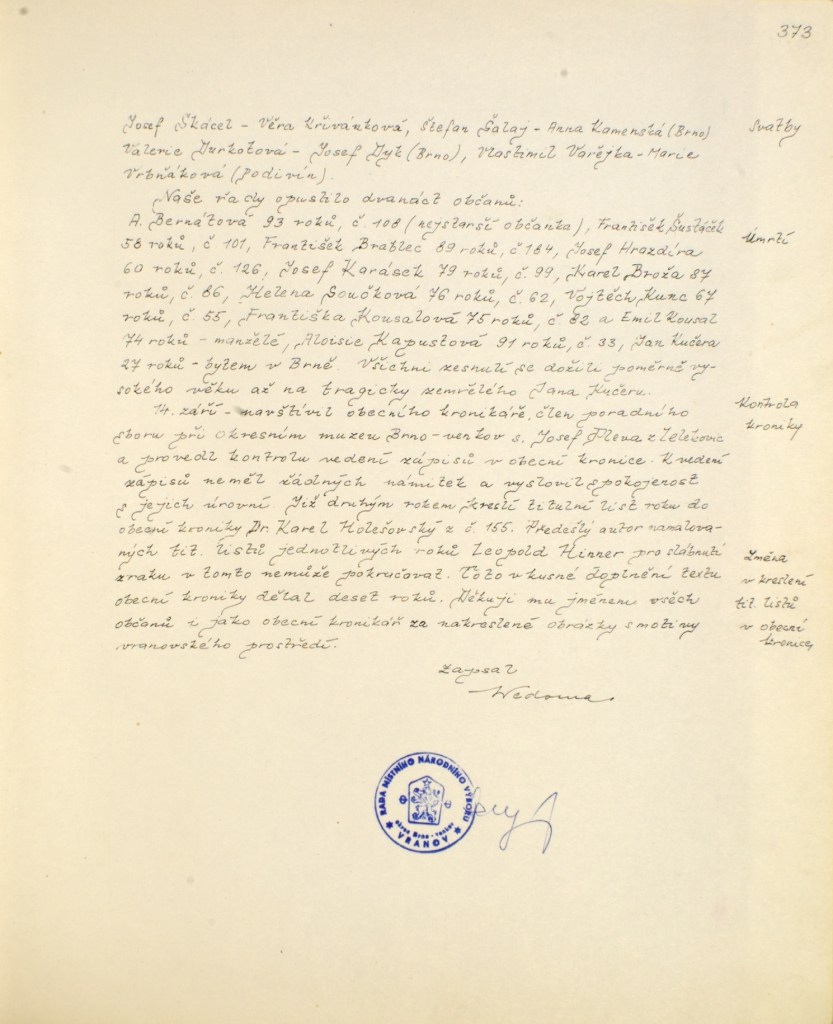 373
Josef Škácel - Věra Křivánková, Štefan Šalaj - Anna Kamenská (Brno)
Svatby
Valerie Durkotová - Josef Dyk (Brno), Vlastimil Vařejka - Marie
Vrbňáková (Podivín).
Naše řady opustilo dvanáct občanů:
A. Bernátová 93 roků, č. 108 (nejstarší občanka), František Šustáček
Úmrtí
58 roků, č 101, František Brablec 89 roků, č 184, Josef Hrazdíra
60 roků, č. 126, Josef Karásek 79 roků, č. 99, Karel Broža 87
roků, č. 86, Helena Součková 76 roků, č. 62, Vojtěch Kunc 67
roků, č 55, Františka Kousalová 75 roků, č 82 a Emil Kousal
74 roků - manželé, Aloisie Kapustová 91 roků, č. 33, Jan Kučera
27 roků - bytem v Brně. Všichni zesnulí se dožili poměrně vy-
sokého věku až na tragicky zemřelého Jana Kučeru.
Kontrola
kroniky
14. září - navštívil obecního kronikáře, člen poradního
sboru při Okresním muzeu Brno-venkov s. Josef Pleva z Želešovic
a provedl kontrolu vedení zápisů v obecní kronice. K vedení
zápisů neměl žádných námitek a vyslovil spokojenost
s jejich úrovní. Již druhým rokem kreslí titulní list roku do
obecní kroniky Dr. Karel Holešovský z č. 155. Předešlý autor namalova-
ných tit. listů jednotlivých roků Leopold Hinner pro slábnutí
Změna
v kreslení
tit. listů
v obecní
kronice
zraku v tomto nemůže pokračovat. Toto vkusné doplnění textu
obecní kroniky dělal deset roků. Děkuji mu jménem všech
občanů i jako obecní kronikář za nakreslené obrázky s motivy
vranovského prostředí.
Zapsal
RADA MÍSTNÍHO NÁRODNÍHO VÝBORU
okres Brno-venkov
VRANOV